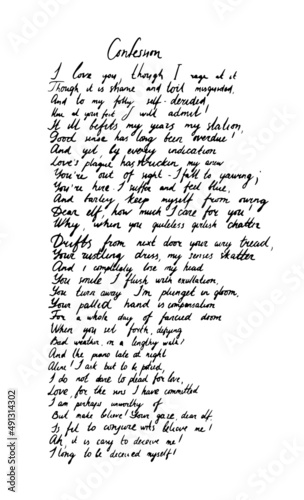 Confession
I love you, though I rage at it
Though it is shame and toil misguided,
And to my folly self-derided,
Here at your feet I will admit!
It ill befits my years my station,
Good sense has long been overdue!
And yet, by every indication
Love's plague has stricken my anew
You're out of sight - I fall to yawning;
You're here - I suffer and feel blue,
And barley keep myself from owing
Dear elf, how much I care for you!
Why, when you guileless girlish chatter
Drifts from next door your airy tread,
Your rustling dress, my senses scatter
And I completely lose my head
You smile I flush with exultation,
You turn away I'm plunged in gloom,
Your pallid hand is compensation
For a whole day of fancied doom
When you set forth, defying
Bad weather, on a lengthy walk!
And the piano late at night
Aline! I ask but to be pitied,
I do not dare to plead for love,
Love, for the sins I have committed
I am perhaps unworthy of
But make believe! Your gaze, dear elf
Is fit to conjure with, believe me!
Ah, it is easy to deceive me!
I long to be deceived myself!
Adobe Stock | #491314302